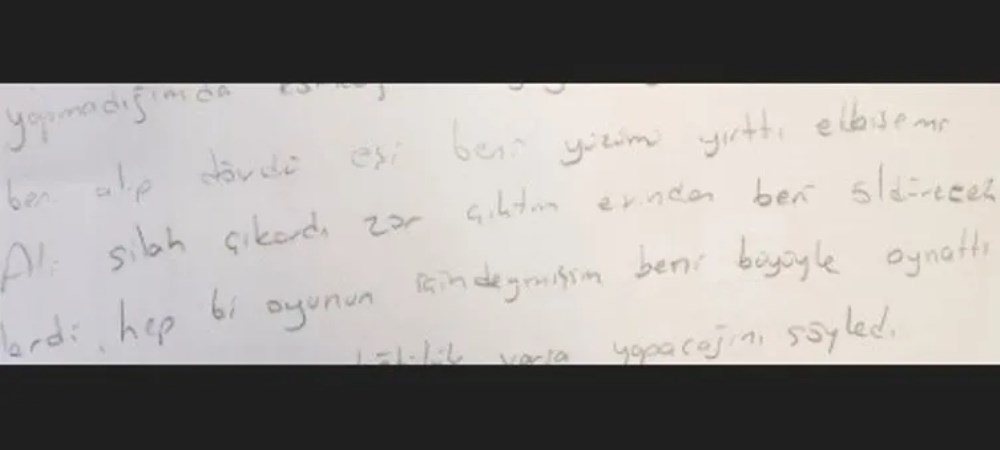 yapmadığımda
beni alıp dövdü eşi beni yüzümü yırttı elbisemi
Ali silah çıkardı zor çıktım evinden beni öldürecek
lerdi. hep bi oyunun içindeymişim beni büyüyle oynattı
varsa yapacağını söyledi.